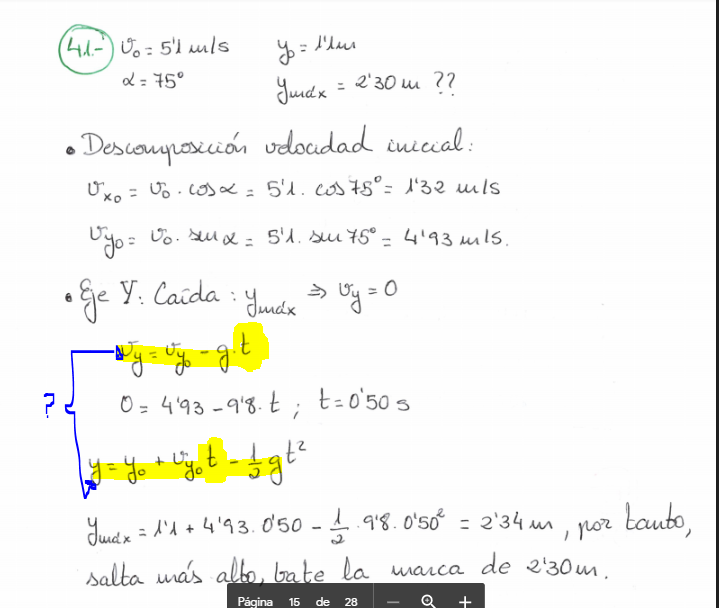 41.- v₀ = 5'1 m/s y₀ = 1'1m
α = 75° ymáx = 2'30 m ??
• Descomposición velocidad inicial:
vx₀ = v₀ · cos α = 5'1 · cos 75° = 1'32 m/s
vy₀ = v₀ · sen α = 5'1 · sen 75° = 4'93 m/s.
• Eje Y: Caída: ymáx ⇒ vy = 0
vy = vy₀ - g·t
?
0 = 4'93 - 9'8 · t ; t = 0'50 s
y = y₀ + vy₀ t - 1/2 g t²
ymáx = 1'1 + 4'93 · 0'50 - 1/2 · 9'8 · 0'50² = 2'34 m, por tanto,
salta más alto, bate la marca de 2'30m.
Página 15 de 28 — +